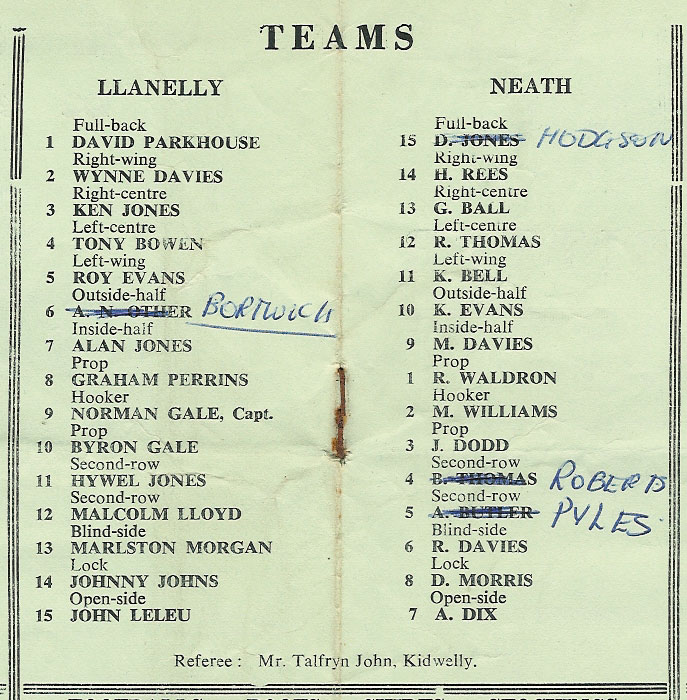 TEAMS
LLANELLY
Full-back
1 DAVID PARKHOUSE
Right-wing
2 WYNNE DAVIES
Right-centre
3 KEN JONES
Left-centre
4 TONY BOWEN
Left-wing
5 ROY EVANS
Outside-half
6 A. N. OTHER BORTWICH
Inside-half
7 ALAN JONES
Prop
8 GRAHAM PERRINS
Hooker
9 NORMAN GALE, Capt.
Prop
10 BYRON GALE
Second-row
11 HYWEL JONES
Second-row
12 MALCOLM LLOYD
Blind-side
13 MARLSTON MORGAN
Lock
14 JOHNNY JOHNS
Open-side
15 JOHN LELEU
NEATH
Full-back
15 D. JONES HODGSON
Right-wing
14 H. REES
Right-centre
13 G. BALL
Left-centre
12 R. THOMAS
Left-wing
11 K. BELL
Outside-half
10 K. EVANS
Inside-half
9 M. DAVIES
Prop
1 R. WALDRON
Hooker
2 M. WILLIAMS
Prop
3 J. DODD
Second-row
4 B. THOMAS ROBERTS
Second-row
5 A. BUTLER PYLES
Blind-side
6 R. DAVIES
Lock
8 D. MORRIS
Open-side
7 A. DIX
Referee : Mr. Talfryn John, Kidwelly.